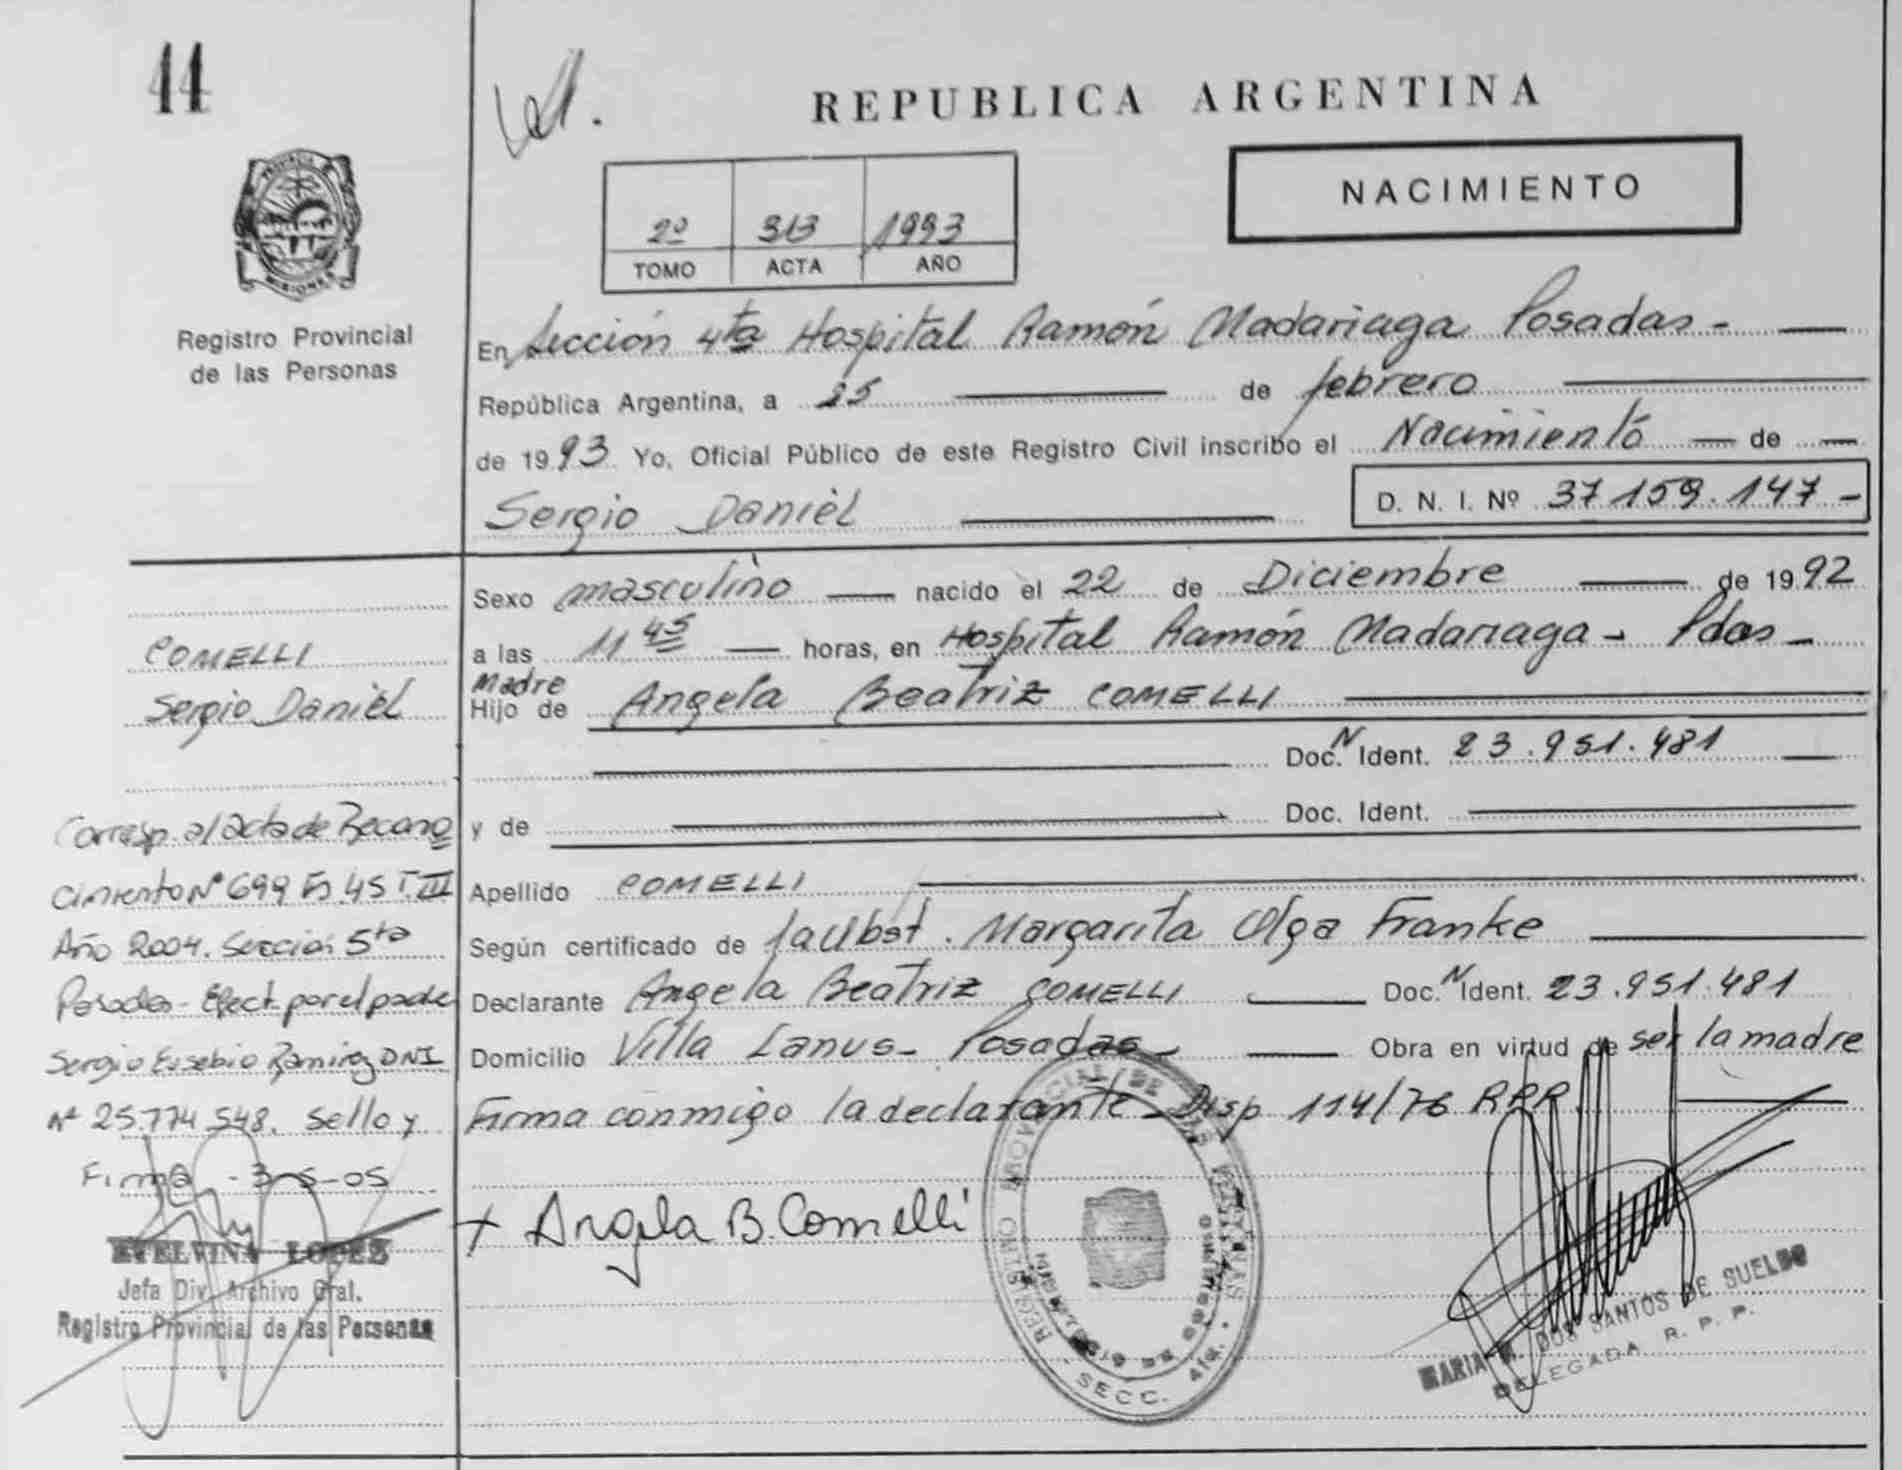 44
REPUBLICA ARGENTINA
NACIMIENTO
2º 313 1993
TOMO ACTA AÑO
PROVINCIA
MISIONES
Registro Provincial
de las Personas
En Sección 4ta Hospital Ramón Madariaga Posadas -
República Argentina, a 25 de febrero
de 1993 Yo, Oficial Público de este Registro Civil inscribo el Nacimiento de
Sergio Daniel D. N. I. Nº 37.159.147 -
Sexo masculino nacido el 22 de Diciembre de 1992
a las 11 45 horas, en Hospital Ramón Madariaga - Pdas -
Madre
Hijo de Angela Beatriz COMELLI
Doc. N Ident. 23.951.481
y de Doc. Ident.
Apellido COMELLI
Según certificado de Margarita Olga Franke
Declarante Angela Beatriz COMELLI Doc. N Ident. 23.951.481
Domicilio Villa Lanus - Posadas - Obra en virtud de ser la madre
Firma conmigo la declarante - Disp 114/76 RPP
+ Angela B. Comelli
COMELLI
Sergio Daniel
Corresp. al acta de Recono
cimiento Nº 699 Fs. 45 T. III
Año 2004. Sección 5ta
Posadas - Efect. por el padre
Sergio Eusebio Ramirez DNI
Nº 25.774.548. Sello y
Firma - 3-5-05
ETELVINA LOPEZ
Jefa Div. Archivo Gral.
Registro Provincial de las Personas
REGISTRO PROVINCIAL DE LAS PERSONAS
SECC. 4ta.
MARIA DOS SANTOS DE SUELDO
DELEGADA R. P. P.